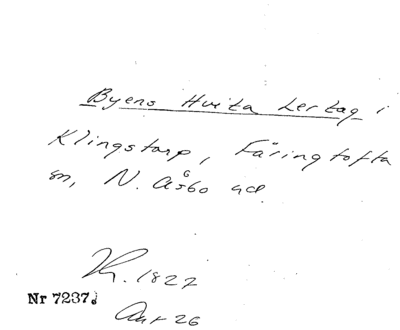 Byens Hvita Lertag i
Klingstorp, Färingtofta
sn, N. Åsbo hd
Th. 1827
Nr 7237.
Aur 26